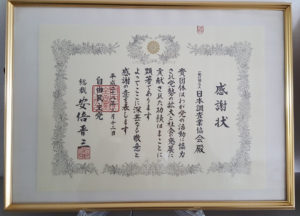 感謝状
日本調査業協会 殿
貴団体はわが党の活動に協力
され党勢の拡大と社会の発展に
貢献された功績はまことに
顕著であります
よってここに深甚なる敬意と
感謝の意を表します
平成
自由民主党
総裁 安倍晋三